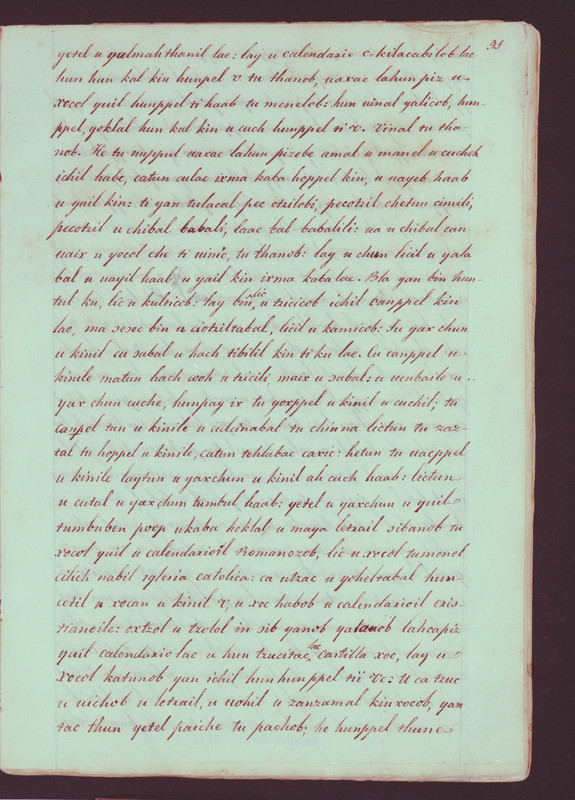 93
yetel u yalmahthanil lae: lay u calendario c-kilacabilob lae
hun hun kal kin hunpel v. tu thanob, uaxac lahun piz u
xocol yuil hunppel ti haab tu menelob: hun uinal yalicob, hun-
ppel, yoklal hun kal kin u cuch hunppel ti v. Vinal tu tha-
nob. He tu nyppel uaxac lahun pizebe amal u manel u cuchob
ichil habe, catun culac ixma kaba hoppel kin, u uayeb haab
u yail kin: ti yan tulacal pec otzilobi, pecotzil chetun cimili,
pecotzil u chibal babali, laac bal babalili: ua u chibal can
uaix u yocol che ti uinic, tu thanob: lay u chun licil u yala
bal u uayil haab u yail kin ixma kaba lae. Bla yan bin hun-
tul ku, lic u kulticob: lay bin lic u tzicicob ichil canppel kin
lae, ma sesec bin u ciotziltabal, licil u kamicob: Tu yax chun
u kinil cu sabal u hach tibilil kin ti ku lae. Cu canppel u
kinile matun hach uoh u tzicili, maix u sabal: u uenbaile u..
yax chun uche, hunpay ix tu yoxppel u kinil u cuchil; tu
canpel tun u kinile u culcinabal tu chinna lictun tu zaz-
tal tu hoppel u kinile, catun tohlabac caxic: hetun tu uacppel
u kinile laytun u yaxchun u kinil ah cuch haab: lictun
u cutal u yaxchun tumbul haab: yetel u yaxchun u yuil
tumbuben poop ukaba heklal u maya letrail sibanob tu
xocol yuil u calendarioil Romanozob, lic u xocol tumenel
cilich nabil iglesia catolica: ca utzac u yeheltabal hun
cetil u xocan u kinil v, u xoc habob u calendarioil cris-
tianoile: oxtzol u tzolol in sib yanob yalanob lahcapiz
yuil calendario lae u hun tzucitac lae castilla xoc, lay u
xocol katunob yan ichil hunhunppel tii Vc: U ca tzuc
u uichob u letrail, u uohil u zanzamal kinxocob, yan
tac thun yetel paiche tu pachob; he hunppel thune